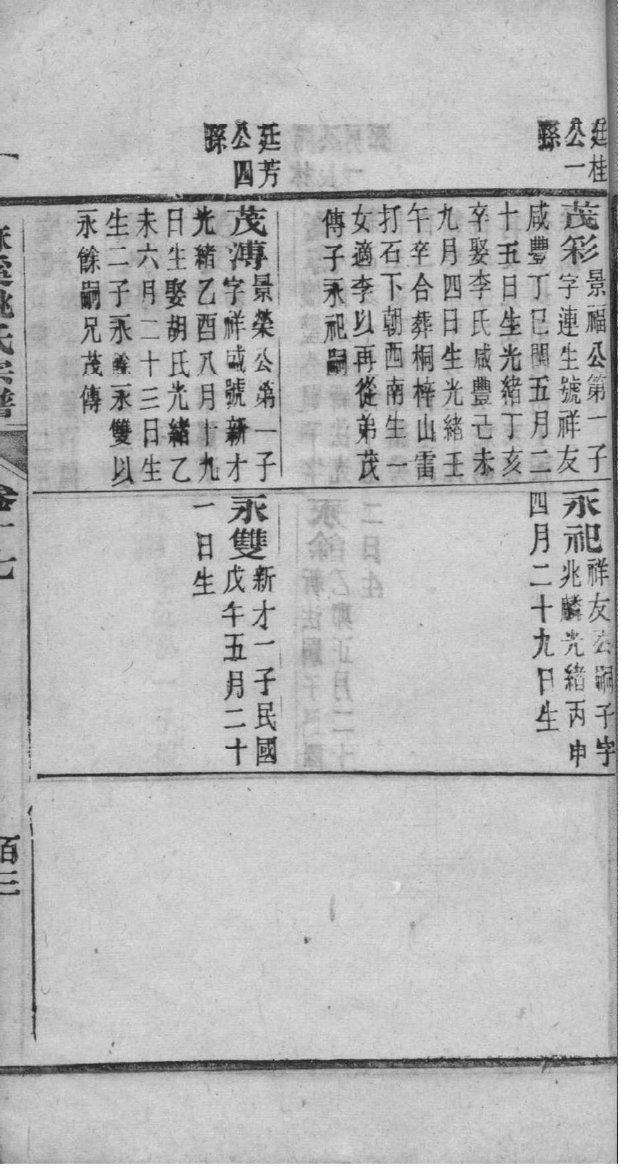 廷桂
公一
孫
茂彩景福公第一子
字連生號祥友
咸豐丁巳閏五月二
十五日生光緒丁亥
卒娶李氏咸豐己未
九月四日生光緒壬
午卒合葬桐梓山雷
打石下朝西南生一
女適李以再從弟茂
傳子永祀嗣
永祀祥友公嗣子字
兆麟光緒丙申
四月二十九日生
廷芳
公四
孫
茂溥景榮公第一子
字祥咸號新才
光緒乙酉八月十九
日生娶胡氏光緒乙
未六月二十三日生
生二子永餘永雙以
永餘嗣兄茂傳
永雙新才一子民國
戊午五月二十
一日生
姚氏宗譜
卷十七
百三